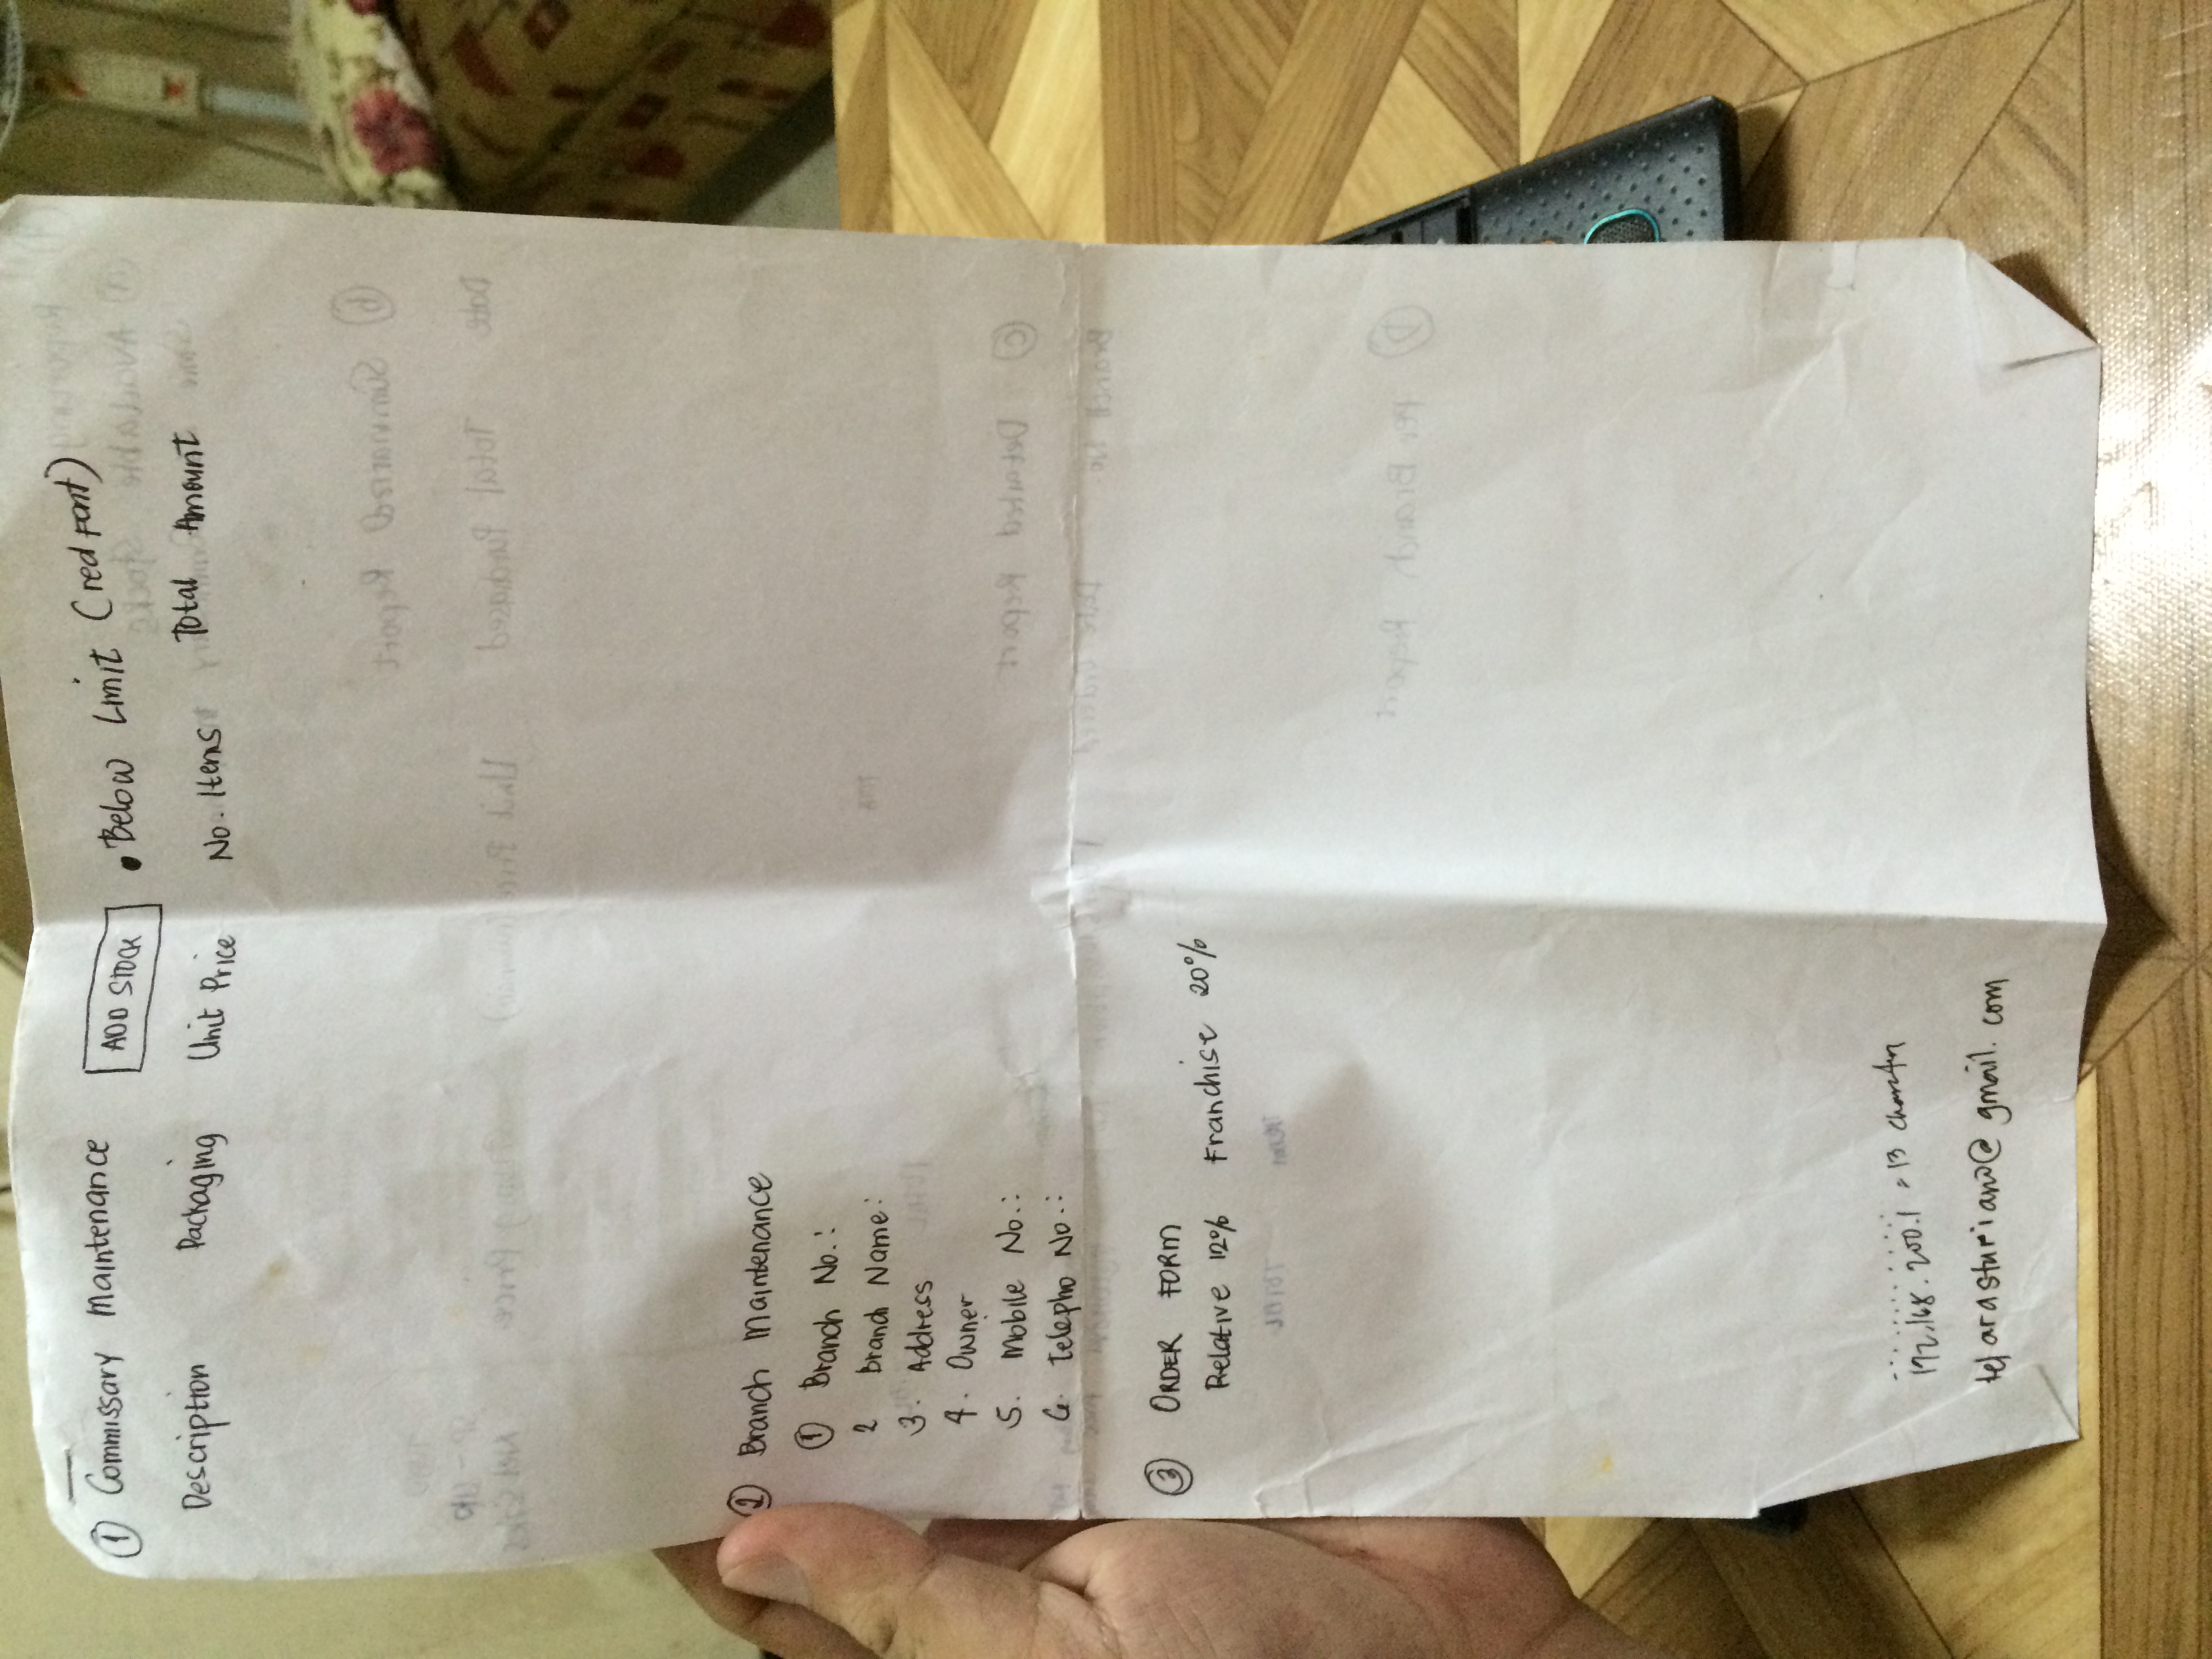 ① Commissary Maintenance ADD STOCK • Below Limit (red font)
Description Packaging Unit Price No. Items Total Amount
② Branch Maintenance
① Branch No.:
2 Branch Name:
3. Address
4. Owner
5. Mobile No.:
6. Telepho No.:
③ ORDER FORM
Relative 12% Franchise 20%
192.168.200.1 = 13
@gmail.com